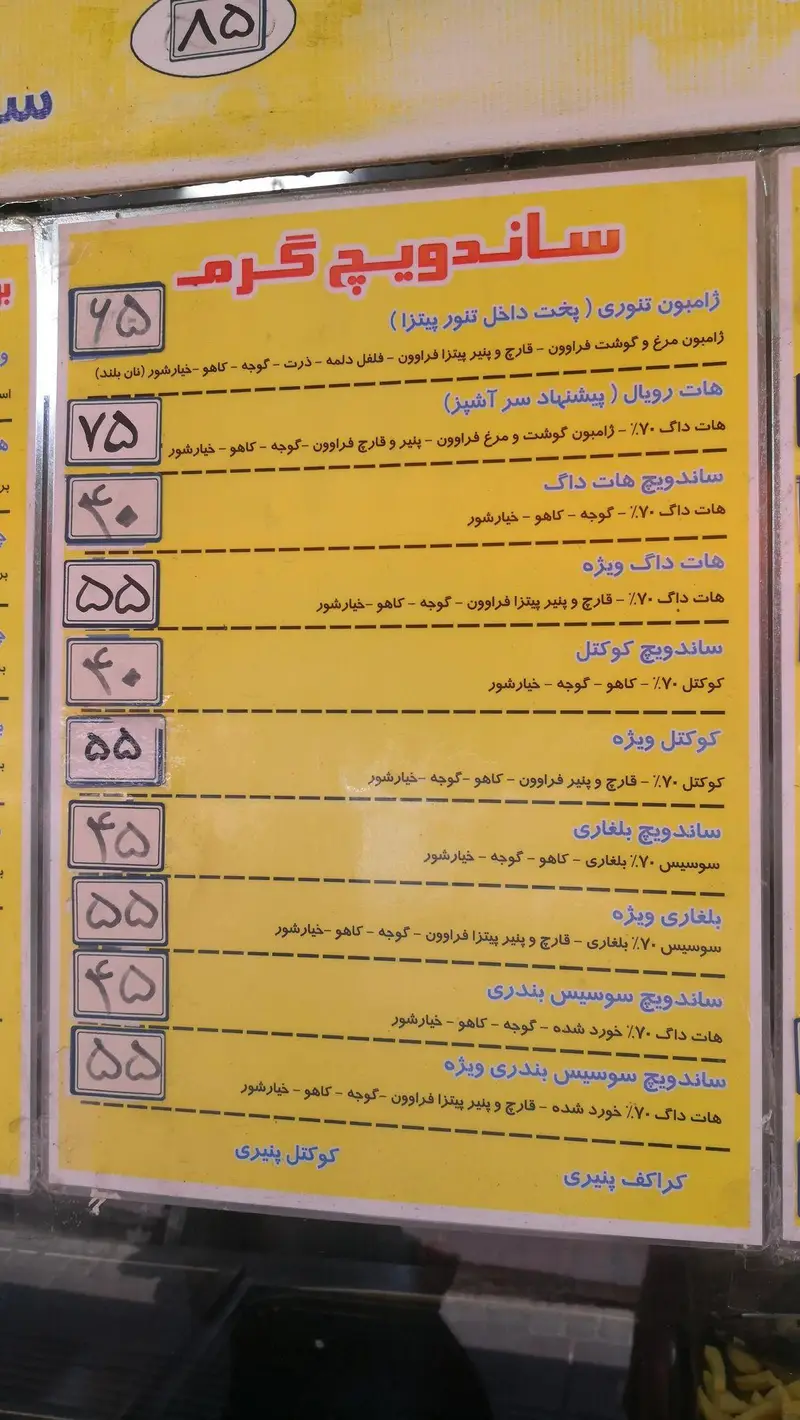 ۸۵
ساندویچ گرم
ژامبون تنوری ( پخت داخل تنور پیتزا )
۶۵
ژامبون مرغ و گوشت فراوون - قارچ و پنیر پیتزا فراوون - فلفل دلمه - ذرت - گوجه - کاهو -خیارشور (نان بلند)
هات رویال ( پیشنهاد سر آشپز)
۷۵
هات داگ ۷۰٪ - ژامبون گوشت و مرغ فراوون - پنیر و قارچ فراوون -گوجه - کاهو - خیارشور
ساندویچ هات داگ
۴۰
هات داگ ۷۰٪ - گوجه - کاهو - خیارشور
هات داگ ویژه
۵۵
هات داگ ۷۰٪ - قارچ و پنیر پیتزا فراوون - گوجه - کاهو -خیارشور
ساندویچ کوکتل
۴۰
کوکتل ۷۰٪ - کاهو - گوجه - خیارشور
کوکتل ویژه
۵۵
کوکتل ۷۰٪ - قارچ و پنیر فراوون - کاهو -گوجه -خیارشور
ساندویچ بلغاری
۴۵
سوسیس ۷۰٪ بلغاری - کاهو - گوجه - خیارشور
بلغاری ویژه
۵۵
سوسیس ۷۰٪ بلغاری - قارچ و پنیر پیتزا فراوون - گوجه - کاهو -خیارشور
ساندویچ سوسیس بندری
۴۵
هات داگ ۷۰٪ خورد شده - گوجه - کاهو - خیارشور
ساندویچ سوسیس بندری ویژه
۵۵
هات داگ ۷۰٪ خورد شده - قارچ و پنیر پیتزا فراوون -گوجه - کاهو - خیارشور
کراکف پنیری
کوکتل پنیری